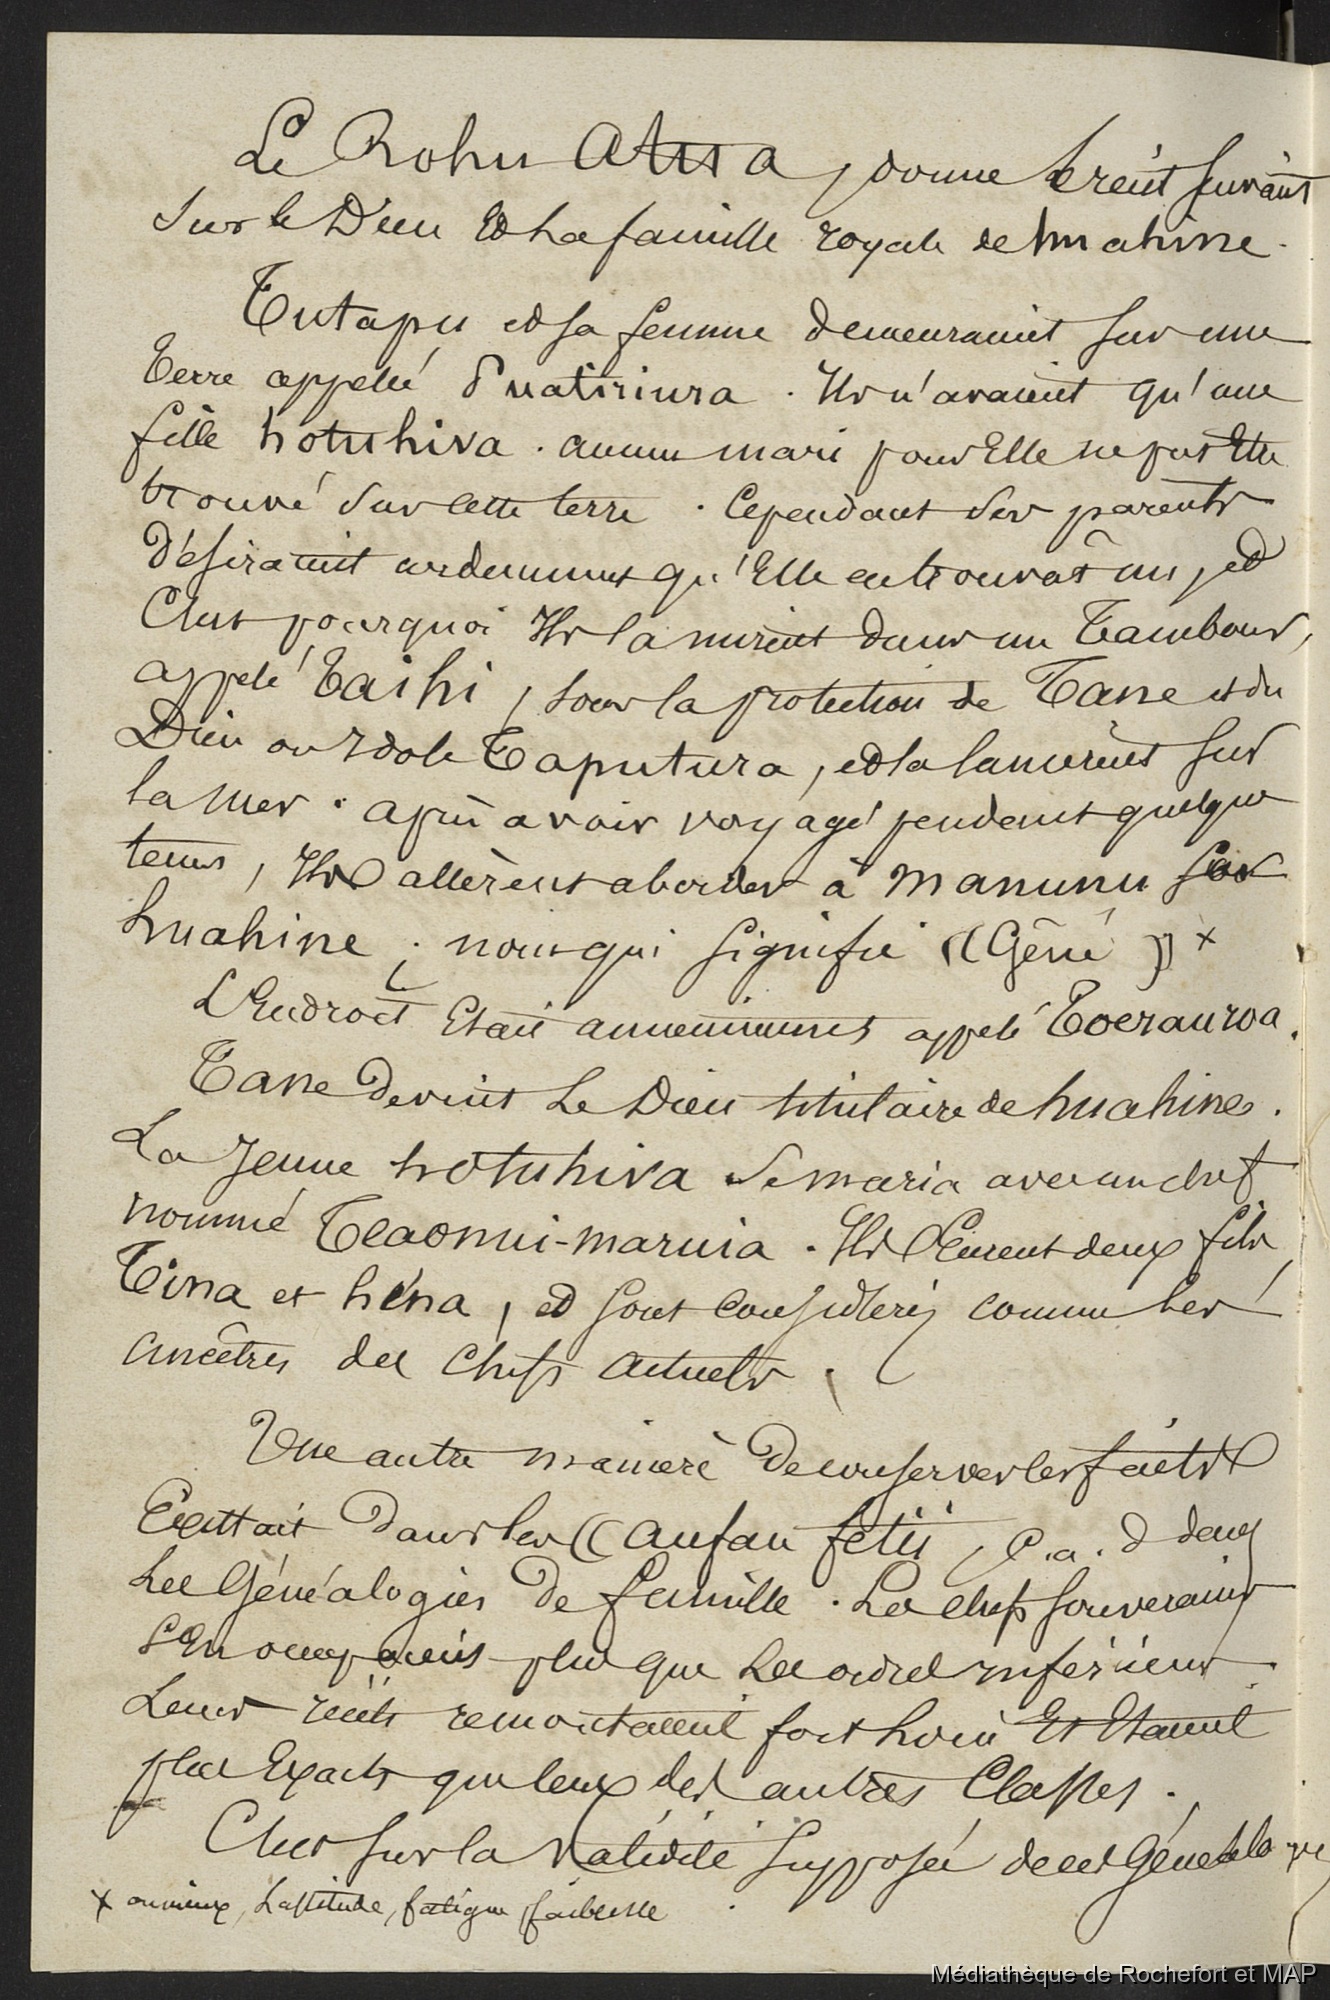 Le Rohu Atua, donne le récit suivant
sur le Dieu et la famille royale de huahine.
Tutapu et sa femme demeuraient sur une
Terre appelée Puatiriura. Ils n'avaient qu'une
fille hotuhiva. aucun mari pour Elle ne put être
trouvé sur cette terre. Cependant ses parents
désiraient ardemment qu'Elle en trouvât un, et
C'est pourquoi Ils la mirent dans un Tambour,
appelé Taihi, sous la protection de Tane et du
Dieu ou Idole Taputura, et la lancèrent sur
la mer. après avoir voyagé pendant quelque
tems, Ils allèrent aborder à Manunu sur
huahine; nom qui signifie ((Gêné)) x
L'Endroit Etait anciennement appelé Toerauroa.
Tane devint le Dieu titulaire de huahine.
La Jeune hotuhiva se maria avec un chef
nommé Teaonui-maruia. Ils Eurent deux fils,
Tina et hina, et sont considérés comme les
ancêtres des chefs actuels.
Une autre manière de conserver les faits
Existait dans les ((aufau fetii, c.a.d dans
les Généalogies de famille. Les chefs souverains
s'en occupaient plus que les ordres inférieurs.
Leurs récits remontaient fort loin Et Etaient
plus Exacts que ceux des autres Classes.
C'est sur la validité supposée de ces Généalogies
x ou mieux, Lassitude, fatigue, faiblesse.
Médiathèque de Rochefort et MAP